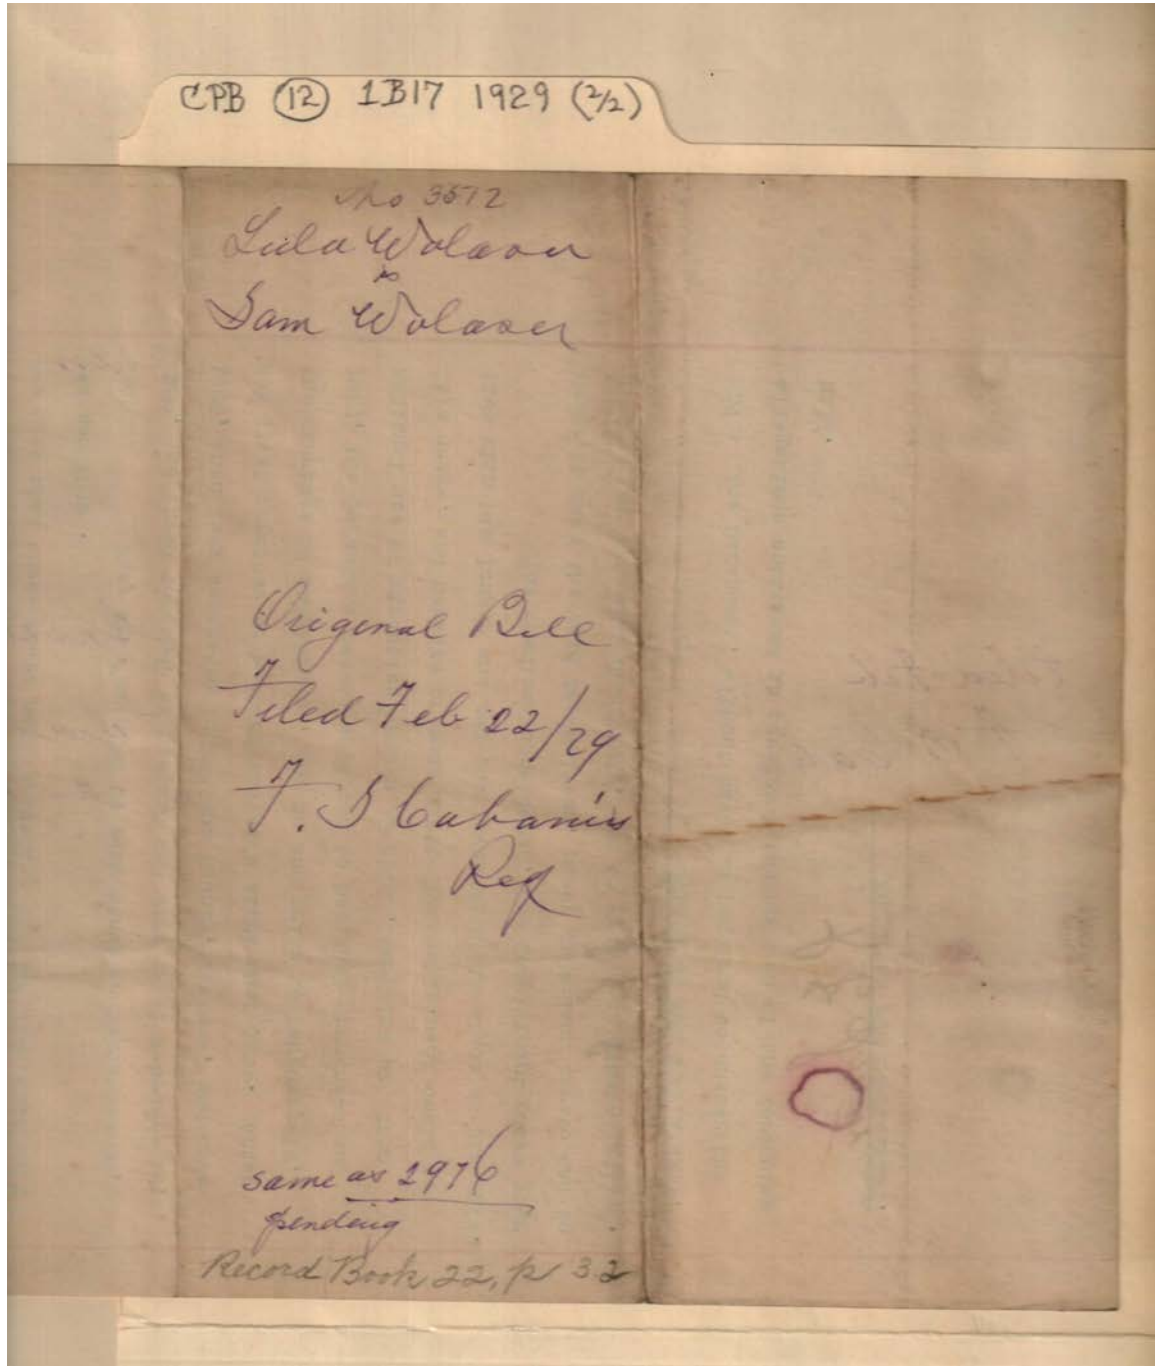 CPB (12) 1B17 1929 (2/2)
No 3572
Lula Wolaver
vs
Sam Wolaver
Origenal Bill
Filed Feb 22/29
F. S Cabaniss
Reg
same as 2976
pending
Record Book 22, p 32